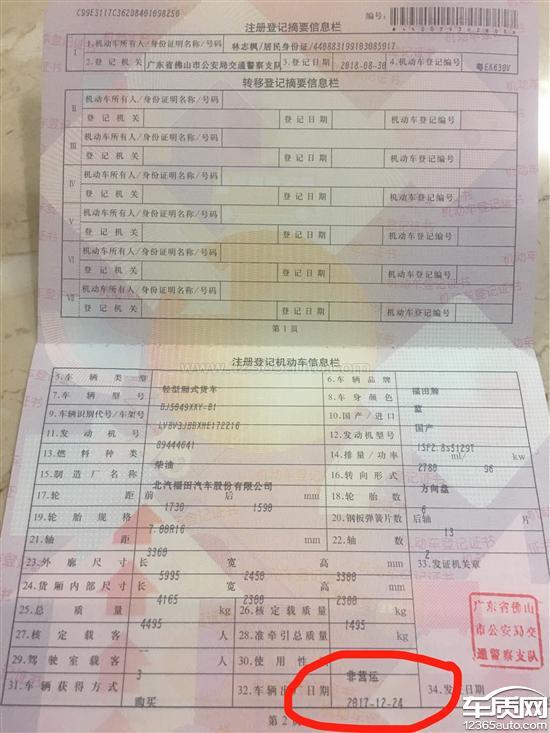 C99E3117C36208401098250
编号:
注册登记摘要信息栏
I 1.机动车所有人/身份证明名称/号码 林志枫/居民身份证/440883199103085017
2.登记机关 广东省佛山市公安局交通警察支队 3.登记日期 2018-08-30 4.机动车登记编号 粤EK630V
转移登记摘要信息栏
II 机动车所有人/身份证明名称/号码
登记机关 登记日期 机动车登记编号
III 机动车所有人/身份证明名称/号码
登记机关 登记日期 机动车登记编号
IV 机动车所有人/身份证明名称/号码
登记机关 登记日期 机动车登记编号
V 机动车所有人/身份证明名称/号码
登记机关 登记日期 机动车登记编号
VI 机动车所有人/身份证明名称/号码
登记机关 登记日期 机动车登记编号
VII 机动车所有人/身份证明名称/号码
登记机关 登记日期 机动车登记编号
第1页
注册登记机动车信息栏
5.车辆类型 轻型厢式货车 6.车辆品牌 福田牌
7.车辆型号 BJ5049XXY-B1 8.车身颜色 蓝
9.车辆识别代号/车架号 LVBV3JBBXHE172216 10.国产/进口 国产
11.发动机号 89444641 12.发动机型号
13.燃料种类 柴油 14.排量/功率 2780 ml/ 96 kw
15.制造厂名称 北汽福田汽车股份有限公司 16.转向形式 方向盘
17.轮距 前 1730 后 1590 mm 18.轮胎数 6
19.轮胎规格 7.00R16 20.钢板弹簧片数 后轴 13 片
21.轴距 3360 mm 22.轴数 2
23.外廓尺寸 长 5995 宽 2450 高 3300 mm 33.发证机关章
24.货厢内部尺寸 长 4165 宽 2300 高 2300 mm
25.总质量 4495 kg 26.核定载质量 1495 kg
27.核定载客 -- 人 28.准牵引总质量 -- kg
29.驾驶室载客 3 人 30.使用性 非营运
31.车辆获得方式 购买 32.车辆出厂日期 2017-12-24 34.发证日期
广东省佛山
市公安局交
通警察支队
第2页
车质网
www.12365auto.com